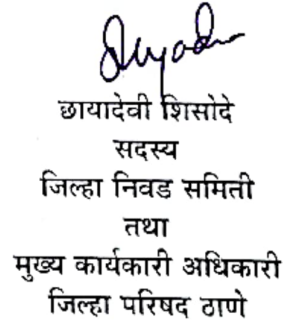 छायादेवी शिसोदे
सदस्य
जिल्हा निवड समिती
तथा
मुख्य कार्यकारी अधिकारी
जिल्हा परिषद ठाणे